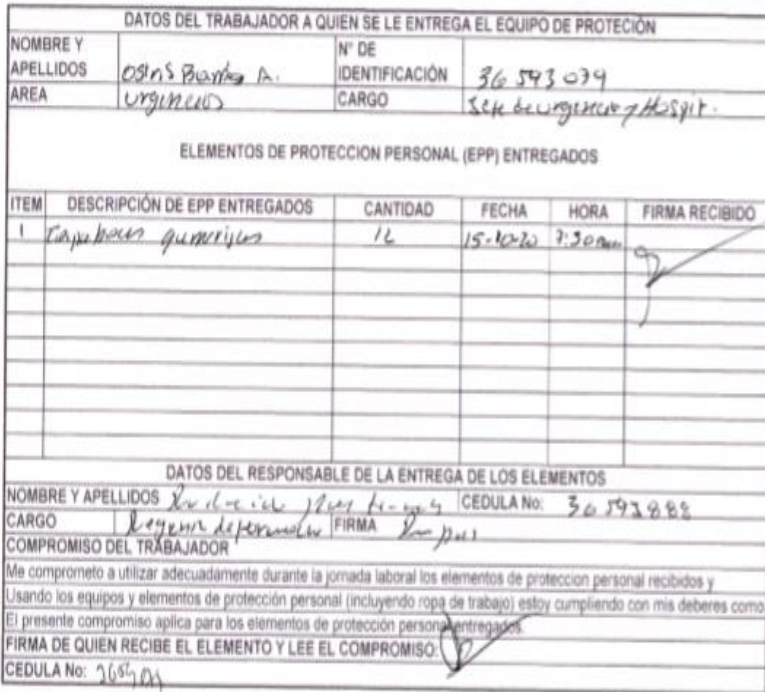 DATOS DEL TRABAJADOR A QUIEN SE LE ENTREGA EL EQUIPO DE PROTECIÓN
NOMBRE Y APELLIDOS A. N° DE IDENTIFICACIÓN 36 593 079
AREA Urgencias CARGO Jefe de urgencia y Hospit.
ELEMENTOS DE PROTECCION PERSONAL (EPP) ENTREGADOS
ITEM DESCRIPCIÓN DE EPP ENTREGADOS CANTIDAD FECHA HORA FIRMA RECIBIDO
1 Tapabocas 15-10-20
DATOS DEL RESPONSABLE DE LA ENTREGA DE LOS ELEMENTOS
NOMBRE Y APELLIDOS CEDULA No: 36593888
CARGO FIRMA
COMPROMISO DEL TRABAJADOR
Me comprometo a utilizar adecuadamente durante la jornada laboral los elementos de proteccion personal recibidos y
Usando los equipos y elementos de protección personal (incluyendo ropa de trabajo) estoy cumpliendo con mis deberes como
El presente compromiso aplica para los elementos de protección personal entregados.
FIRMA DE QUIEN RECIBE EL ELEMENTO Y LEE EL COMPROMISO:
CEDULA No: